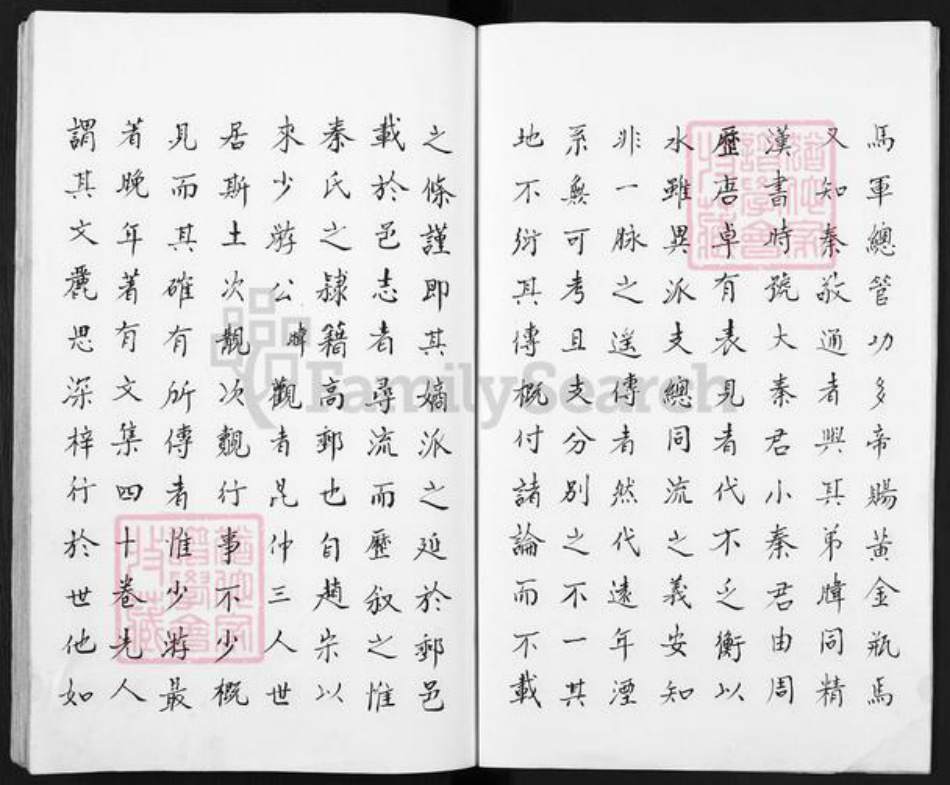 馬軍總管功多帝賜黃金瓶馬
又知秦敬通者與其弟暐同精
漢書時號大秦君小秦君由周
歷唐卓有表見者代不乏衡以
水雖異派支總同流之義安知
非一脉之遥傳者然代遠年湮
系無可考且支分別之不一其
地不衍其傳概付諸論而不載
之條謹即其嫡派之延於郵邑
載於邑志者尋流而歷叙之惟
秦氏之隸籍高郵也自趙宋以
來少游公暐觀者昆仲三人世
居斯土次覯次覿行事不少概
見而其確有所傳者惟少游最
著晚年著有文集四十卷先人
謂其文麗思深梓行於世他如
FamilySearch